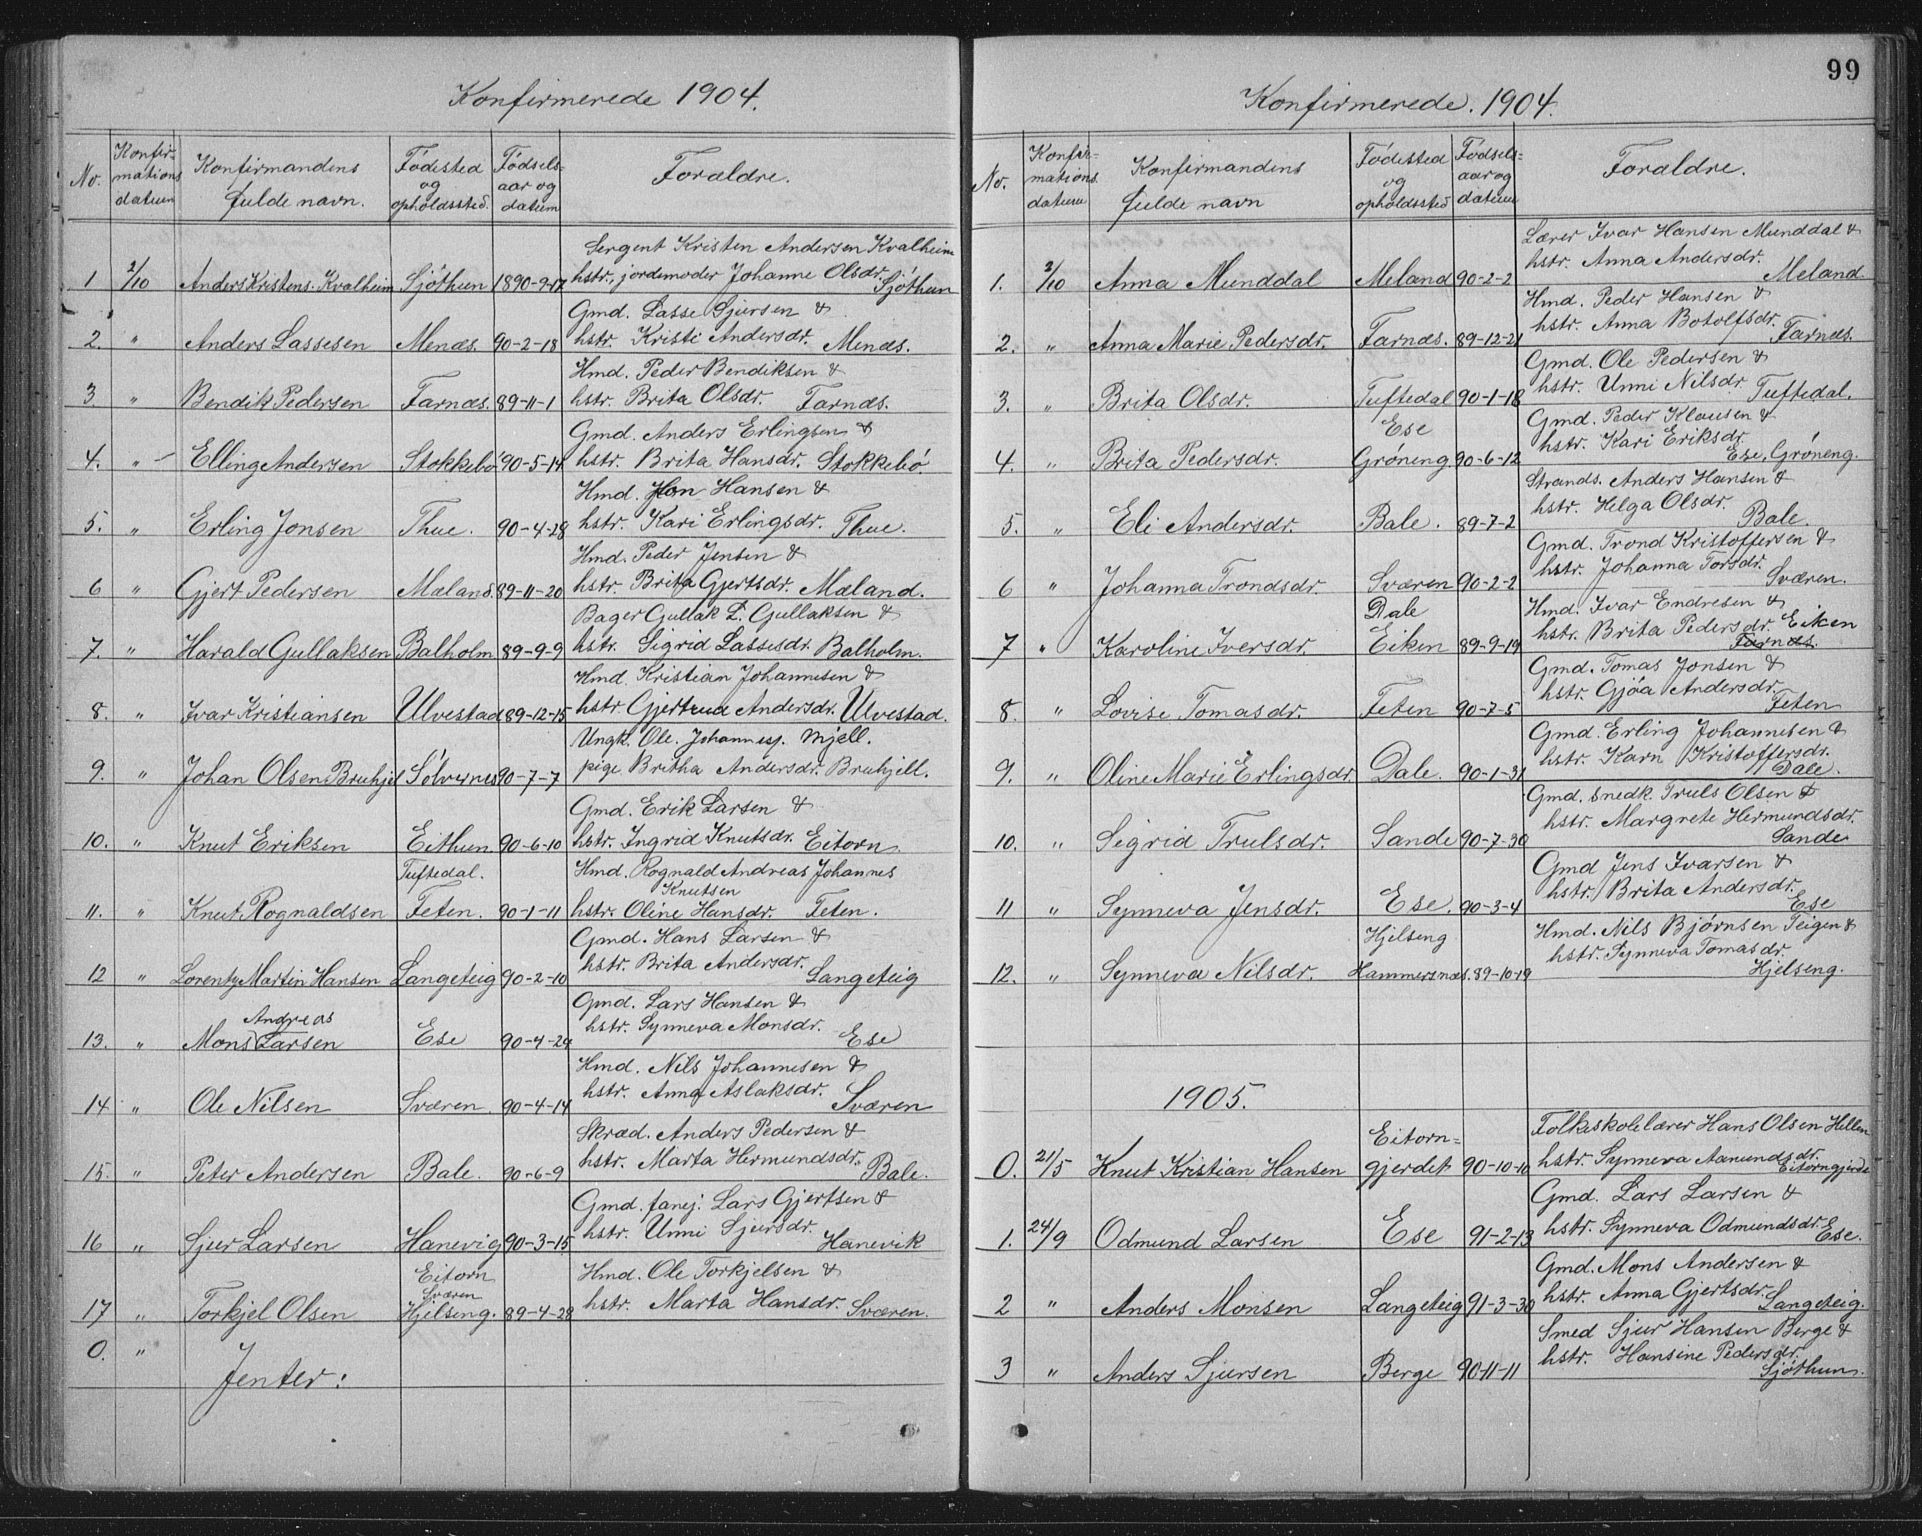 Konfirmerede 1904.
No. Konfir-mations datum Konfirmandens fulde navn. Fødested og opholdssted. Fødsels-aar og datum Forældre.
Sergent Kristen Andersen Kvalheim
1 2/10 Anders Kristens. Kvalheim Sjøthun 1890-9-17 hstr. jordemoder Johanne Olsdr. Sjøthun
Gmd. Lasse Sjursen &
2. " Anders Lassesen Menæs. 90-2-18 hstr Kristi Andersdr. Menæs.
Hmd. Peder Bendiksen &
3 " Bendik Pedersen Farnæs. 89-11-1 hstr. Brita Olsdr. Farnæs.
Gmd. Anders Erlingsen &
4. " Elling Andersen Stokkebø 90-5-14 hstr. Brita Hansdr. Stokkebø
Hmd. Jon Hansen &
5. " Erling Jonsen Thue. 90-4-28 hstr. Kari Erlingsdr. Thue.
Hmd. Peder Jensen &
6 " Gjert Pedersen Mæland. 89-11-20 hstr. Brita Gjertsdr. Mæland.
Bager Gullak I. Gullaksen &
7. " Harald Gullaksen Balholm 89-9-9 hstr. Sigrid Lassesdr. Balholm.
Hmd. Kristian Johannesen &
8. " Ivar Kristiansen Ulvestad 89-12-15 hstr. Gjertrud Andersdr. Ulvestad.
Ungk. Ole. Johannesj. Mjell.
9. " Johan Olsen Bruhjel Sølvsnes 90-7-7 pige Britha Andersdr. Bruhjell.
Gmd. Erik Larsen &
10. " Knut Eriksen Eithun 90-6-10 hstr. Ingrid Knutsdr. Eitorn.
Tuftedal. Hmd. Rognald Andreas Johannes
Knutsen
11. " Knut Rognaldsen Feten. 90-1-11 hstr. Oline Hansdr. Feten.
Gmd. Hans Larsen &
12 " Lorents Martin Hansen Langeteig 90-2-10 hstr. Brita Andersdr. Langeteig
Gmd. Lars Hansen &
Andreas
13. " Mons Larsen Ese 90-4-29 hstr. Synneva Monsdr. Ese
Hmd. Nils Johannesen &
14 " Ole Nilsen Sværen. 90-4-14 hstr. Anna Aslaksdr. Sværen
Skræd. Anders Pedersen &
15. " Peter Andersen Bale. 90-6-9 hstr. Marta Hermundsdr. Bale.
Gmd. fanej. Lars Gjertsen &
16 " Sjur Larsen Hanevig 90-3-15 hstr. Unni Sjursdr. Hanevik
Eitorn Hmd. Ole Torkjelsen &
Sværen
17 " Torkjel Olsen Hjelseng. 89-4-28 hstr. Marta Hansdr. Sværen.
0. "
Jenter:
99
Konfirmerede. 1904.
No. Konfir-mations. datum Konfirmandens fulde navn Fødested og opholdssted Fødsels-aar og datum Forældre.
Lærer Ivar Hansen Munddal &
1. 2/10 Anna Munddal Meland 90-2-2 hstr. Anna Andersdr. Meland.
Hmd. Peder Hansen &
2. " Anna Marie Pedersdr. Farnæs. 89-12-21 hstr. Anna Botolfsdr. Farnæs.
Gmd. Ole Pedersen &
3. " Brita Olsdr. Tuftedal 90-1-18 hstr. Unni Nilsdr. Tuftedal.
Ese Gmd. Peder Klausen &
4. " Brita Pedersdr. Grøneng 90-6-12 hstr. Kari Eriksdr. Ese, Grøneng.
Strands. Anders Hansen &
5. " Eli Andersdr. Bale. 89-7-2 hstr. Helga Olsdr. Bale.
Gmd. Trond Kristoffersen &
6 " Johanna Trondsdr. Sværen 90-2-2 hstr. Johanna Torsdr. Sværen.
Dale Hmd. Ivar Endresen &
7 " Karoline Iversdr. Eiken 89-9-19 hstr. Brita Pedersdr. Eiken
Farnæs.
Gmd. Tomas Jonsen &
8. " Lovise Tomasdr. Feten 90-7-5 hstr. Gjøa Andersdr. Feten
Gmd. Erling Johannesen &
9. " Oline Marie Erlingsdr Dale. 90-1-31 hstr. Karn Kristoffersdr. Dale.
Gmd. snedk. Truls Olsen &
10. " Sigrid Trulsdr. Sande 90-7-30 hstr. Margrete Hermundsdr. Sande
Gmd Jens Ivarsen &
11 " Synneva Jensdr. Ese. 90-3-4 hstr. Brita Andersdr. Ese
Hjelseng Hmd. Nils Bjørnsen Teigen &
12. " Synneva Nilsdr. Hammersnæs. 89-10-19 hstr. Synneva Tomasdr. Hjelseng.
1905.
Eitorn= Folkeskolelærer Hans Olsen Hellen
0. 21/5 Knut Kristian Hansen gjerdet 90-10-10 hstr. Synneva Aamundsdr. Eitorngjerde
Gmd. Lars Larsen &
1. 24/9 Odmund Larsen Ese 91-2-13 hstr. Synneva Odmundsdr. Ese.
Gmd. Mons Andersen &
2 " Anders Monsen Langeteig 91-3-30 hstr. Anna Gjertsdr. Langeteig.
Smed Sjur Hansen Berge &
3 " Anders Sjursen Berge 90-11-11 hstr. Hansine Pedersdr. Sjøthun.